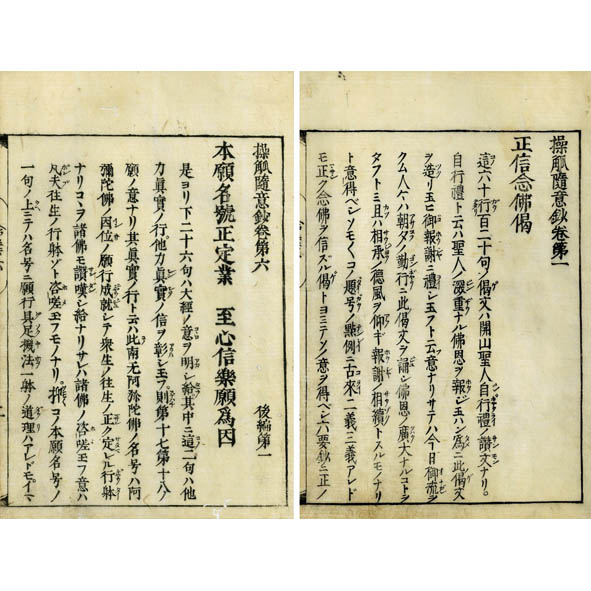 操觚隨意鈔卷第一
正信念佛偈
這六十行百二十句ノ偈文ハ開山聖人自行禮讃文ナリ。
自行禮トハ云ハ聖人ノ深重ナル佛恩ヲ報ジ玉ハン為ニ此偈文
ヲ造リ玉ヒ御報謝ニ禮シ玉フト云意ナリサテハ今日御流ヲ
クム人々ハ朝タノ勤行ニ此偈文ヲ誦シ佛恩ノ廣大ナルコトヲ
タフトミ且ハ相承ノ德風ヲ仰ギ報謝相續トスルモノナリ
ト意得ベシソモく此題号ノ點例ニ古來二義三義アレド
モ正ク念佛ヲ信ズル偈トヨミテソノ意ヲ得ベシ六要鈔ニ正ノ
操觚隨意鈔卷第六
後編第一
本願名號正定業 至心信樂願為因
是ヨリ下二十六句ハ大經ノ意ヲ明シ給其中ニ這二句ハ他
力眞實ノ行。他力眞實ノ信ヲ彰シ玉フ。則第十七第十八ノ
願ノ意ナリ其眞實ノ行ト云ハ此南无阿弥陀佛ノ名号ハ阿
彌陀佛ノ因位ノ願行成就シテ衆生ノ往生ノ正ク定ル行躰
ナリコヽヲ諸佛モ讃嘆シ給ナリサレハ諸佛ノ咨嗟玉フ意ハ
凡夫往生ノ行躰ゾト咨嗟玉フモノナリ。推コノ本願名号ノ
一句ノ上ニテハ名号ニ願行具足機法一躰ノ道理ハアレドモイマ